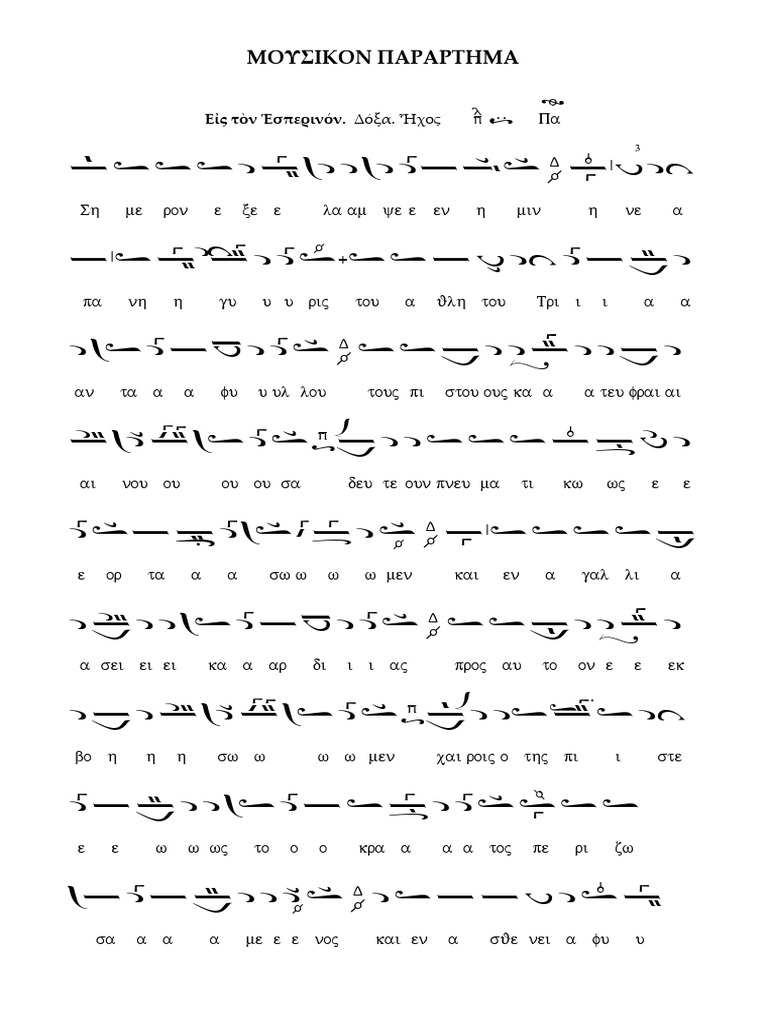 ΜΟΥΣΙΚΟΝ ΠΑΡΑΡΤΗΜΑ
Εἰς τὸν Ἑσπερινόν. Δόξα. Ἦχος λ π Πα
Ση με ρον ε ξε ε λα αμ ψε ε εν η μιν η νε α
πα νη η γυ υ υ ρις του α θλη του Τρι ι ι α α
αν τα α α φυ υ υλ λου τους πι στου ους κα α α τευ φραι αι
αι νου ου ου ου σα δευ τε ουν πνευ μα τι κω ως ε ε
ε ορ τα α α σω ω ω ω μεν και εν α γαλ λι α
α σει ει ει κα α αρ δι ι ι ας προς αυ το ον ε ε εκ
βο η η η σω ω ω ω μεν χαι ροις ο της πι ι στε
ε ε ω ω ως το ο ο κρα α α α τος πε ρι ζω
σα α α α με ε ε νος και εν α σθε νει α φυ υ